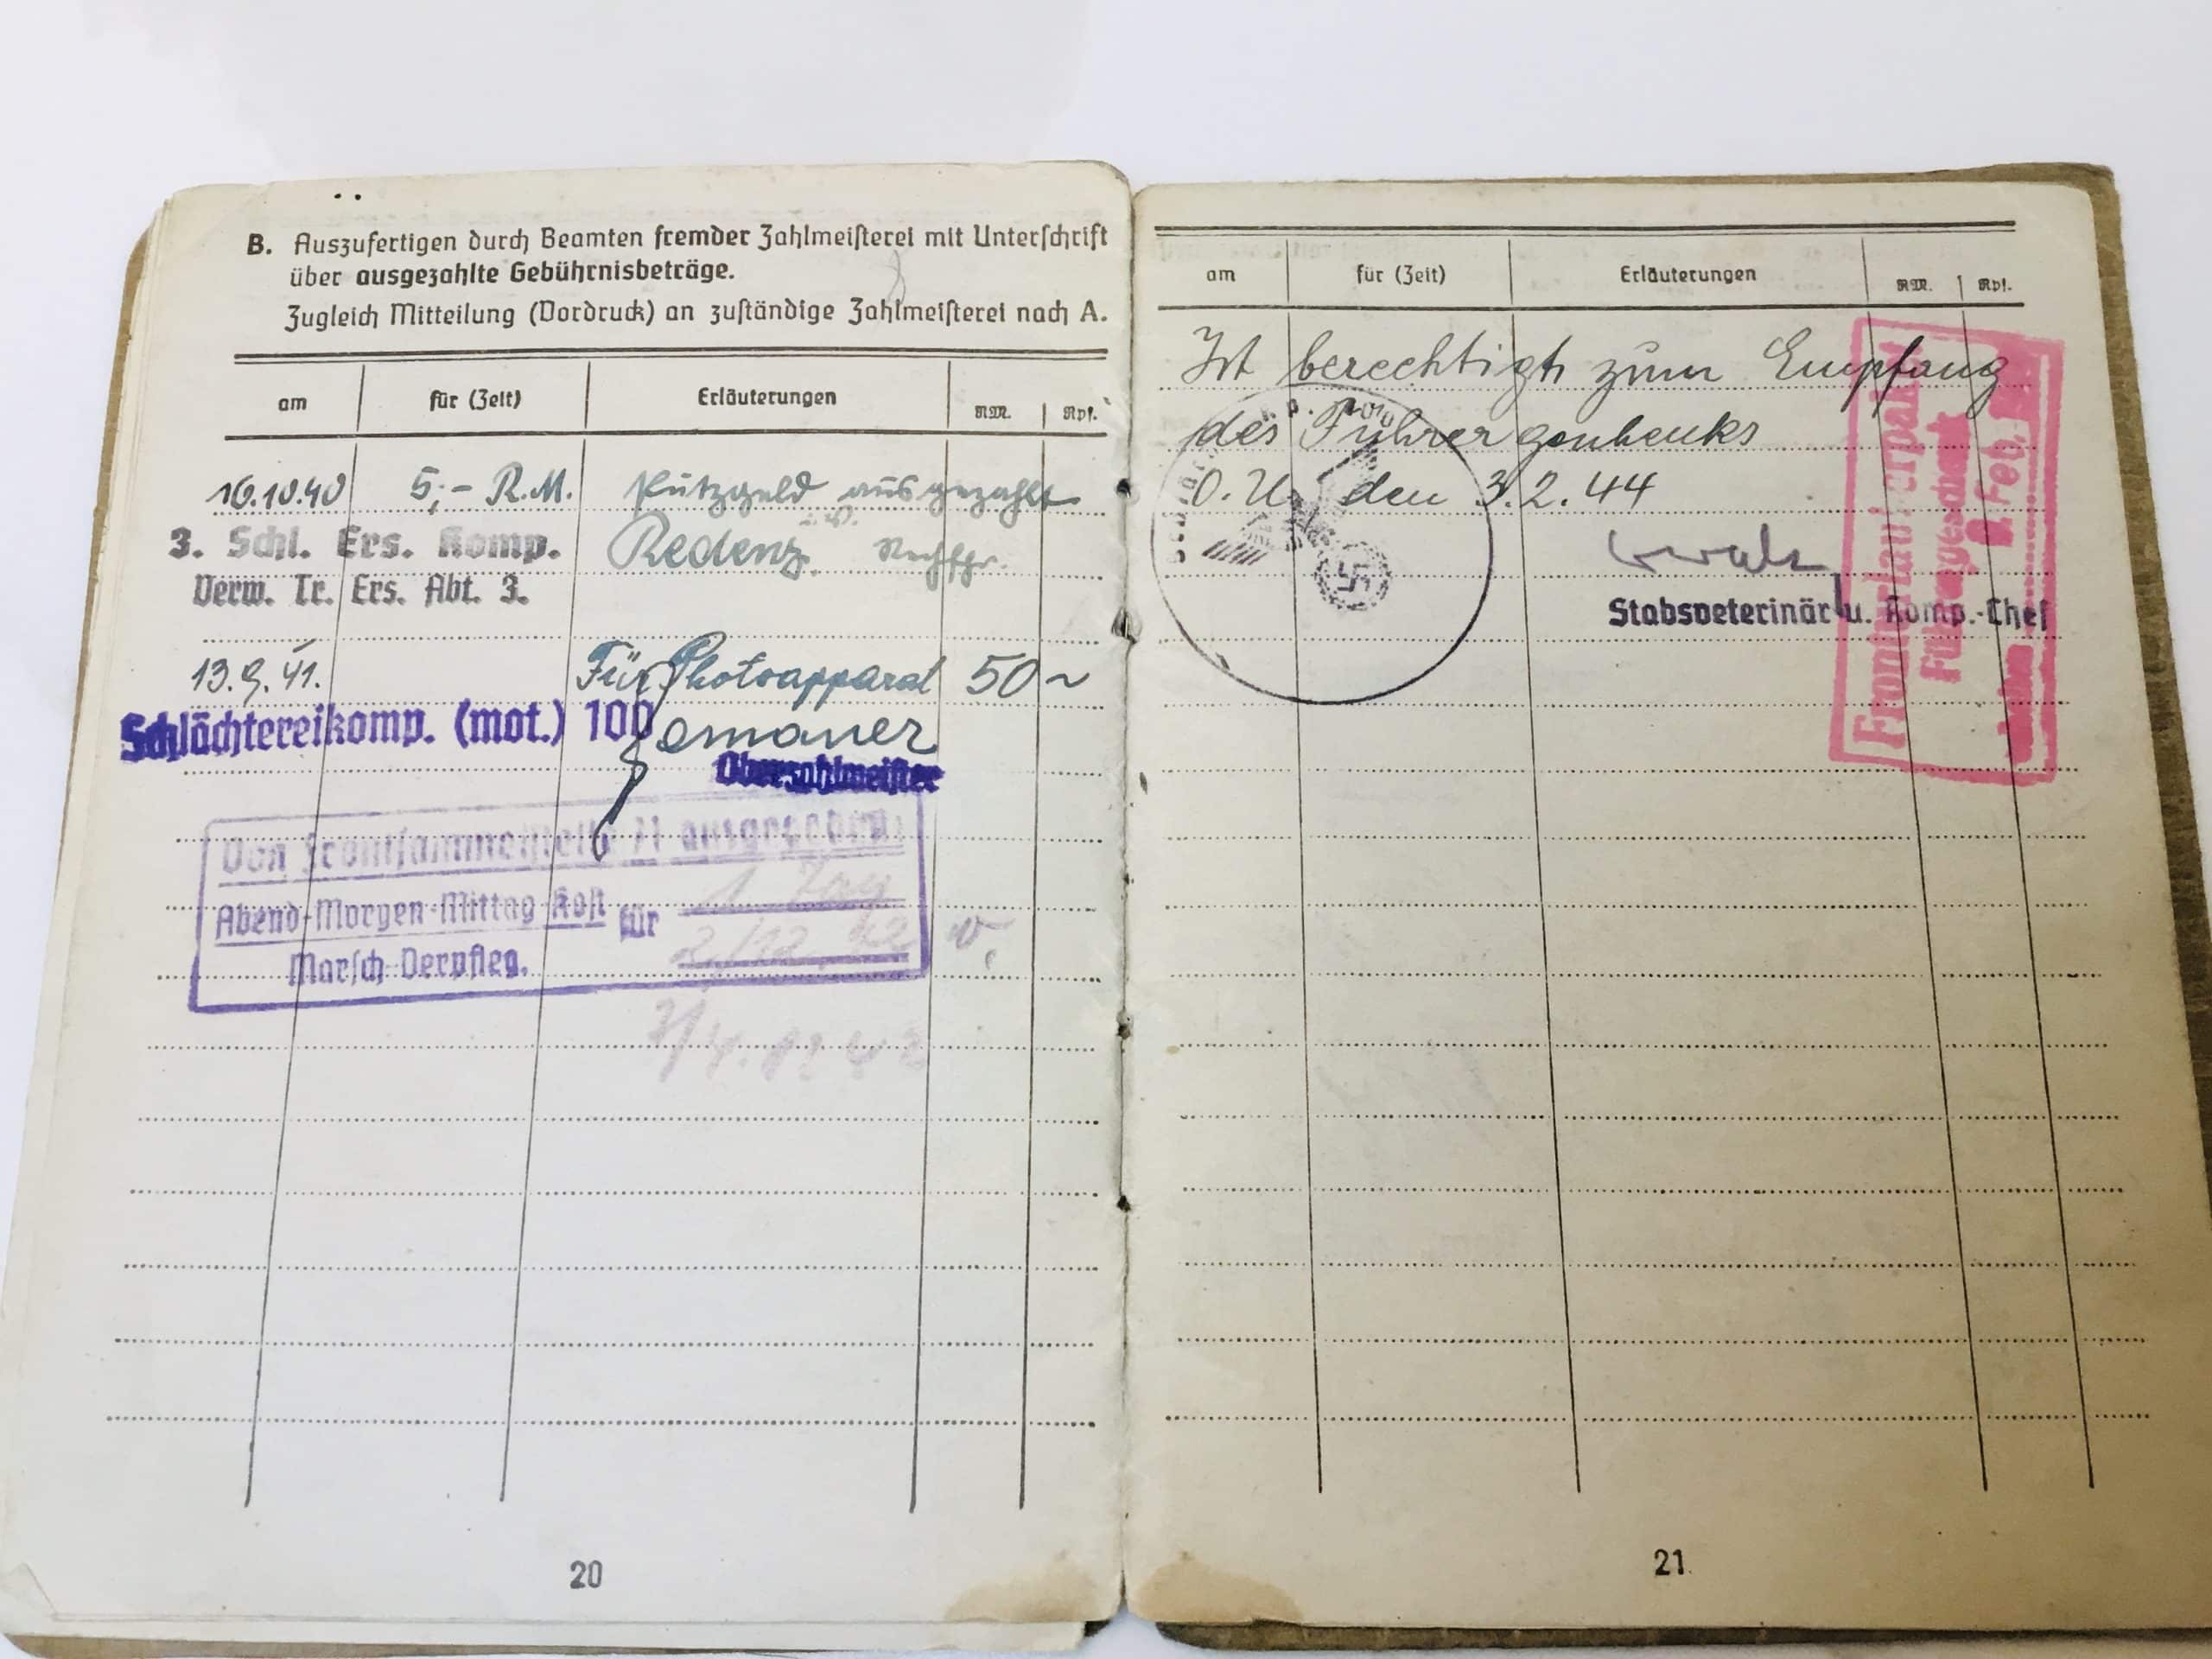 B. Auszufertigen durch Beamten fremder Zahlmeisterei mit Unterschrift
über ausgezahlte Gebührnisbeträge.
Zugleich Mitteilung (Vordruck) an zuständige Zahlmeisterei nach A.
am für (Zeit) Erläuterungen RM. Rpf.
16.10.40 5,- R.M. Putzgeld ausgezahlt
3. Schl. Ers. Komp. Redenz
Verw. Tr. Ers. Abt. 3.
13.9.41. Für Photoapparat 50 ~
Schlächtereikomp. (mot.) 100
Oberzahlmeister
Von Frontsammelstelle 11 ausgegeben:
Abend-Morgen-Mittag-Kost für 1 Tag
Marsch-Verpfleg. 2/12. 42
20
am für (Zeit) Erläuterungen RM. Rpf.
Ist berechtigt zum Empfang
des Führergeschenks
O.U. den 3.2.44
Stabsveterinär u. Komp.-Chef
Fronturlauberpaket
Führergeschenk
Feb.
21